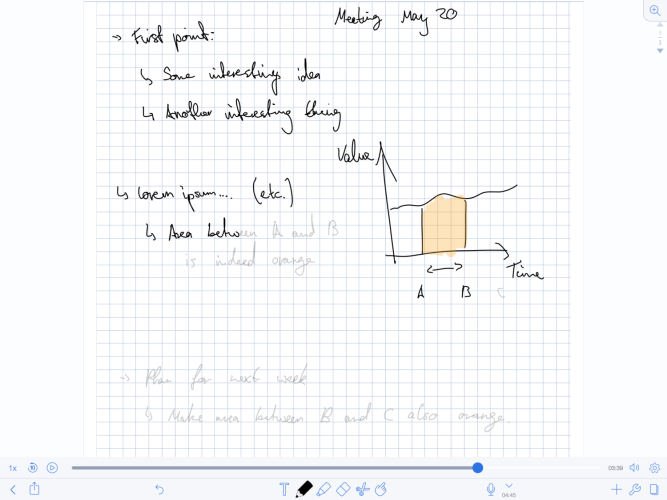 Meeting May 20
→ First point:
↳ Some interesting idea
↳ Another interesting thing
↳ Lorem ipsum.... (etc.)
↳ Area between A and B
is indeed orange
Value
Time
A B C
→ Plan for next week
↳ Make area between B and C also orange.
1x
10
03:39
04:45